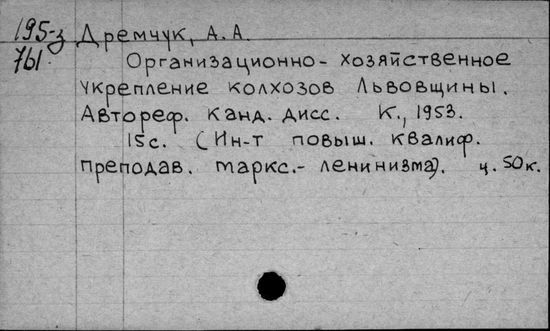 195-з Дремчук, А. А.
761. Организационно-хозяйственное
укрепление колхозов Львовщины.
Автореф. канд. дисс. К., 1953.
15с. (Ин-т повыш. квалиф.
преподав. маркс.-ленинизма). ц. 50 к.